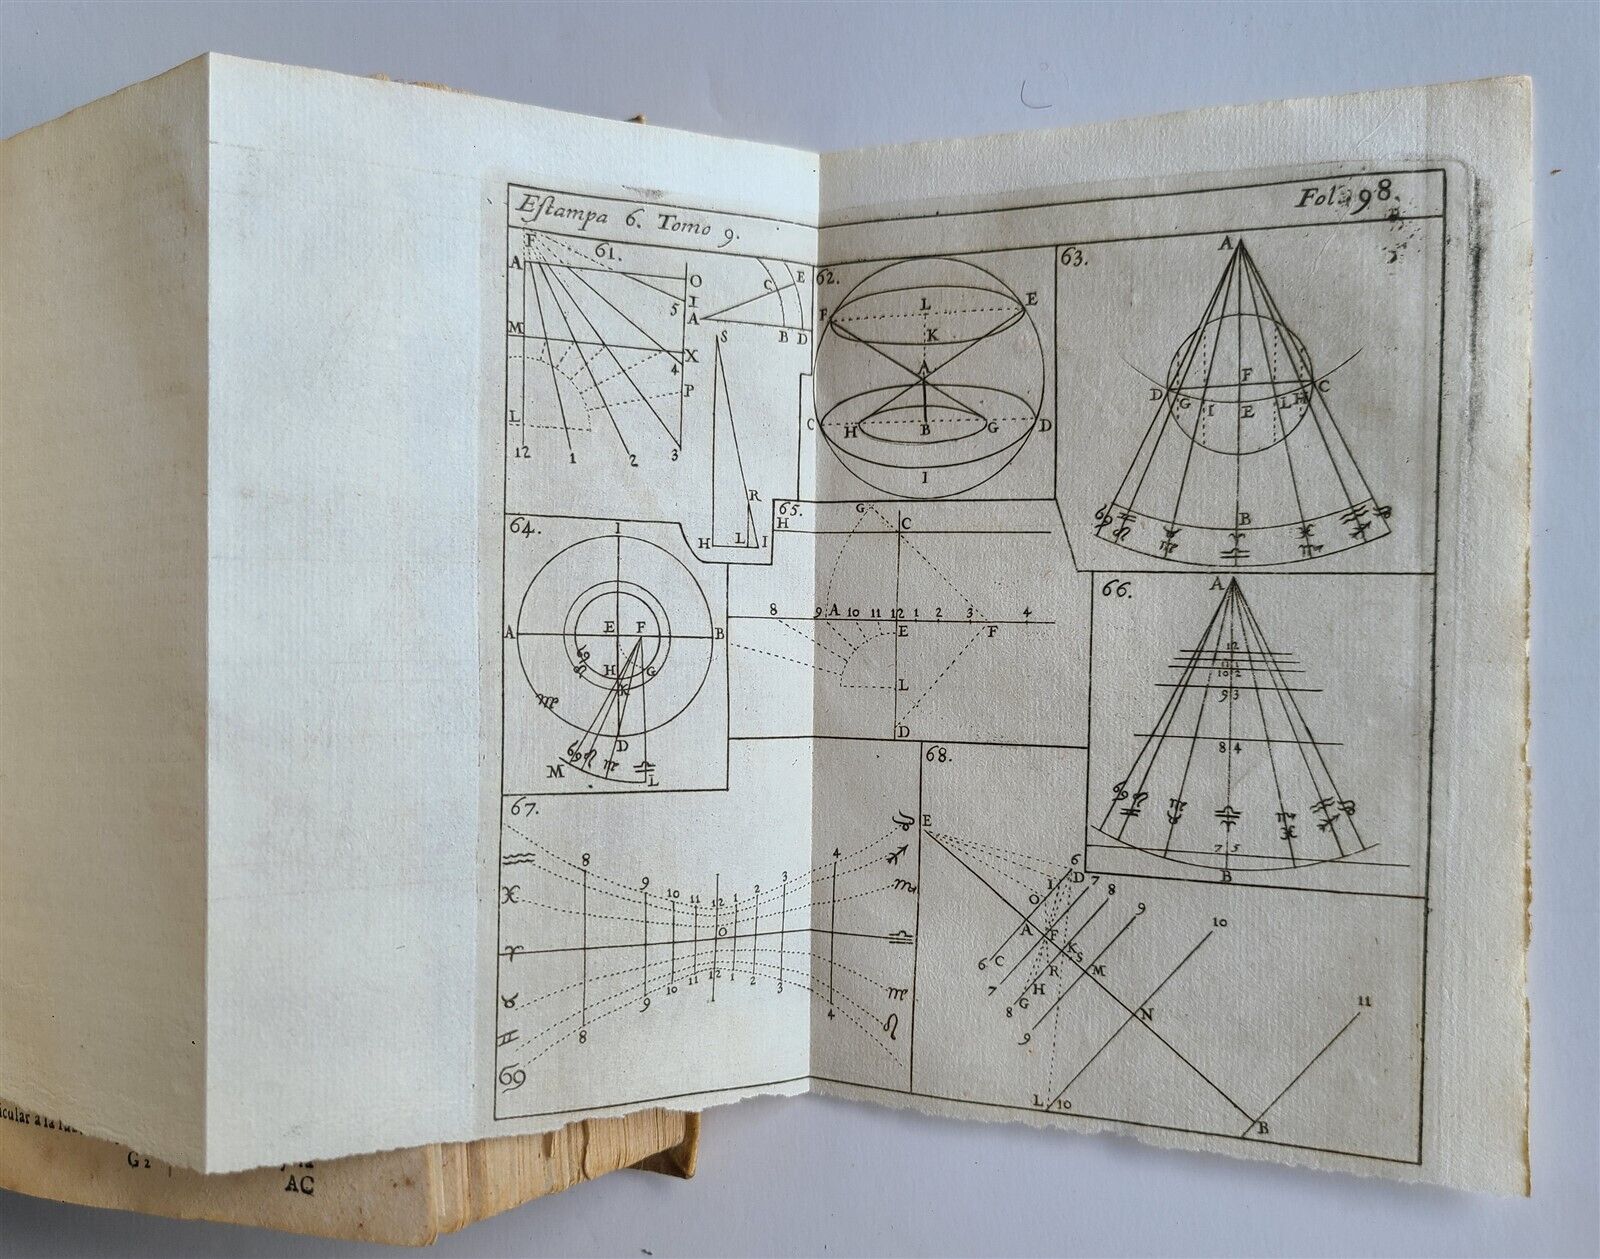 Eſtampa 6. Tomo 9.
Fol. 98.
61.
F
A
O
I
5
M
X
4
P
L
12 1 2 3
C E
A
B D
S
R
H L I
62.
L
F E
K
A
C H B G D
I
63.
A
F
D G I E L H C
B
♋ ♊ ♌ ♉ ♍ ♈ ♎ ♓ ♏ ♒ ♐ ♑
64.
I
A E F B
♋ ♌
H G
K
♍
D
♋ ♌ ♍ ♎
M L
65.
H G C
8 9 A 10 11 12 1 2 3 4
E F
L
D
66.
A
12
11 1
10 2
9 3
8 4
♋ ♌ ♊ ♍ ♉ ♎ ♈ ♏ ♓ ♒ ♐ ♑
7 5
B
67.
♑
♒ 8 4 ♐
♓ 9 10 11 12 1 2 3 ♏
♈ O ♎
♉ 9 10 11 12 1 2 3 ♍
♊ 8 4 ♌
♋
68.
E
6
I D 7
O 8
9
10
A F
K
S
6 C R M
7 H
8 G
9
N
11
L 10
B
icular a la
G 2
AC